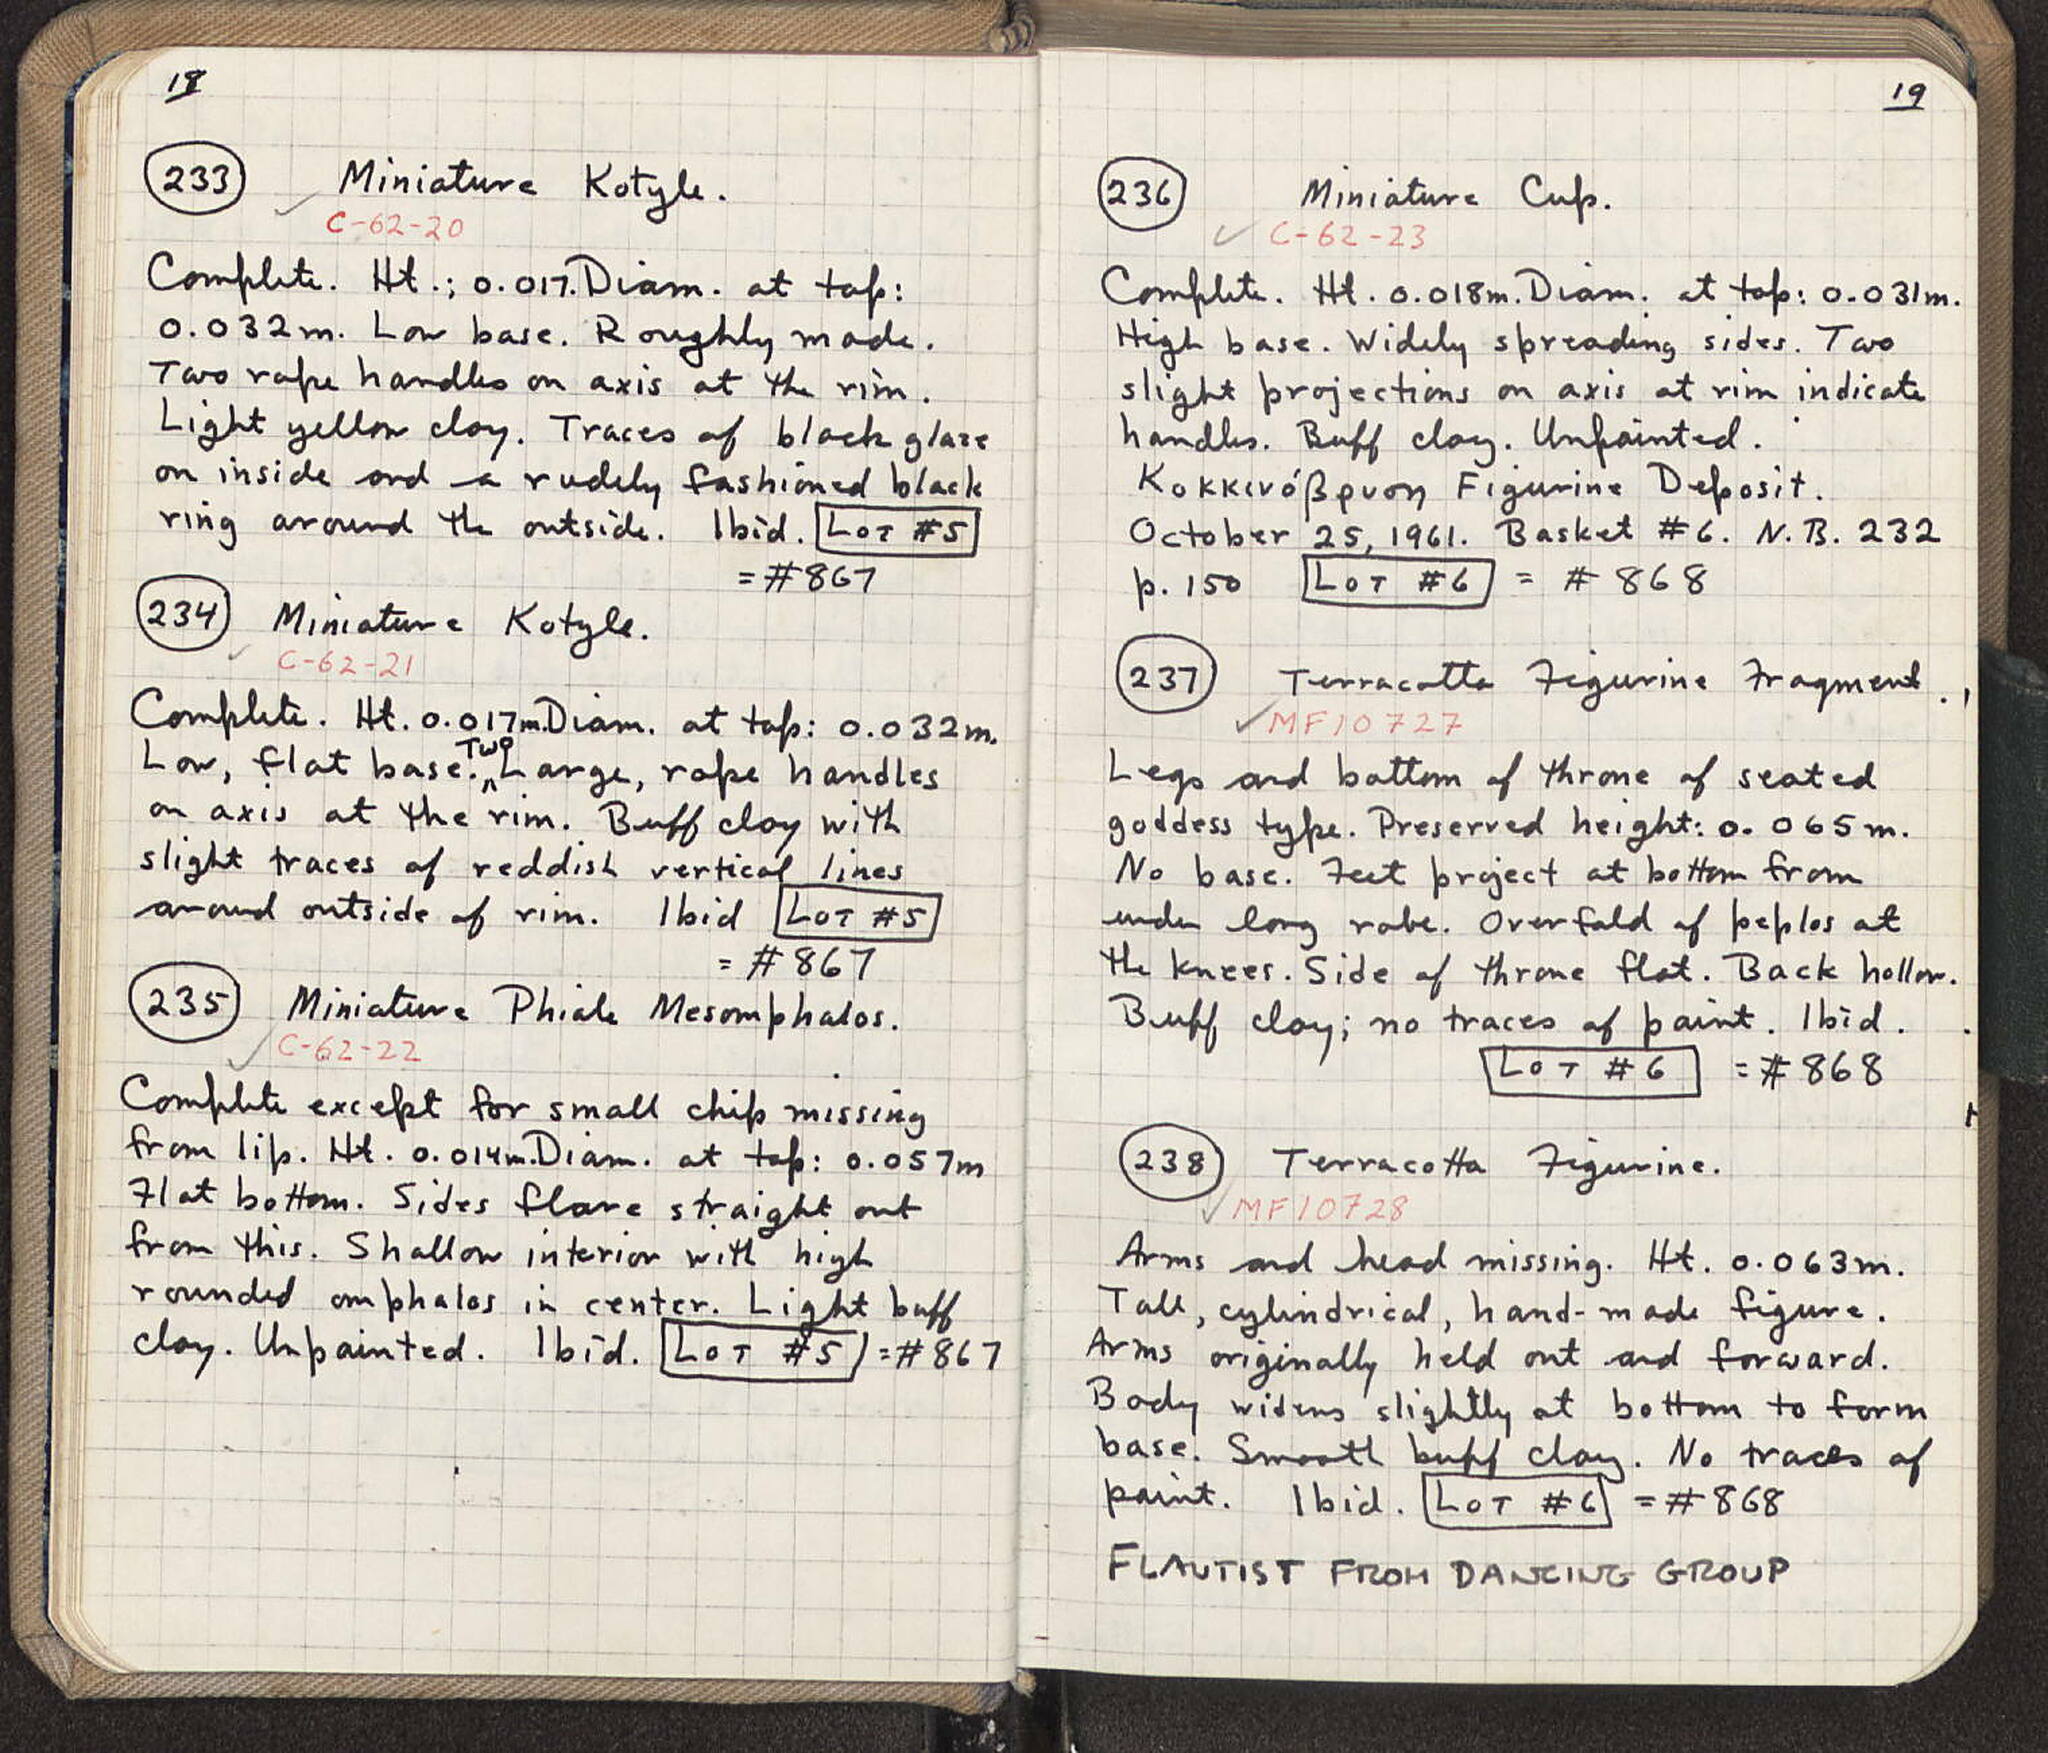 18
233 Miniature Kotyle.
C-62-20
Complete. Ht.; 0.017. Diam. at top:
0.032m. Low base. Roughly made.
Two rope handles on axis at the rim.
Light yellow clay. Traces of black glaze
on inside and a rudely fashioned black
ring around the outside. Ibid. LOT #5
= #867
234 Miniature Kotyle.
C-62-21
Complete. Ht. 0.017m. Diam. at top: 0.032m.
Low, flat base. Two Large, rope handles
on axis at the rim. Buff clay with
slight traces of reddish vertical lines
around outside of rim. Ibid LOT #5
= #867
235 Miniature Phiale Mesomphalos.
C-62-22
Complete except for small chip missing
from lip. Ht. 0.014m. Diam. at top: 0.057m
Flat bottom. Sides flare straight out
from this. Shallow interior with high
rounded omphalos in center. Light buff
clay. Unpainted. Ibid. LOT #5 = #867
19
236 Miniature Cup.
C-62-23
Complete. Ht. 0.018m. Diam. at top: 0.031m.
High base. Widely spreading sides. Two
slight projections on axis at rim indicate
handles. Buff clay. Unpainted.
Κοκκινόβρυση Figurine Deposit.
October 25, 1961. Basket #6. N.B. 232
p. 150 LOT #6 = #868
237 Terracotta Figurine Fragment.
MF10727
Legs and bottom of throne of seated
goddess type. Preserved height: 0.065m.
No base. Feet project at bottom from
under long robe. Overfold of peplos at
the knees. Side of throne flat. Back hollow.
Buff clay; no traces of paint. Ibid.
LOT #6 = #868
238 Terracotta Figurine.
MF10728
Arms and head missing. Ht. 0.063m.
Tall, cylindrical, hand-made figure.
Arms originally held out and forward.
Body widens slightly at bottom to form
base. Smooth buff clay. No traces of
paint. Ibid. LOT #6 = #868
FLAUTIST FROM DANCING GROUP